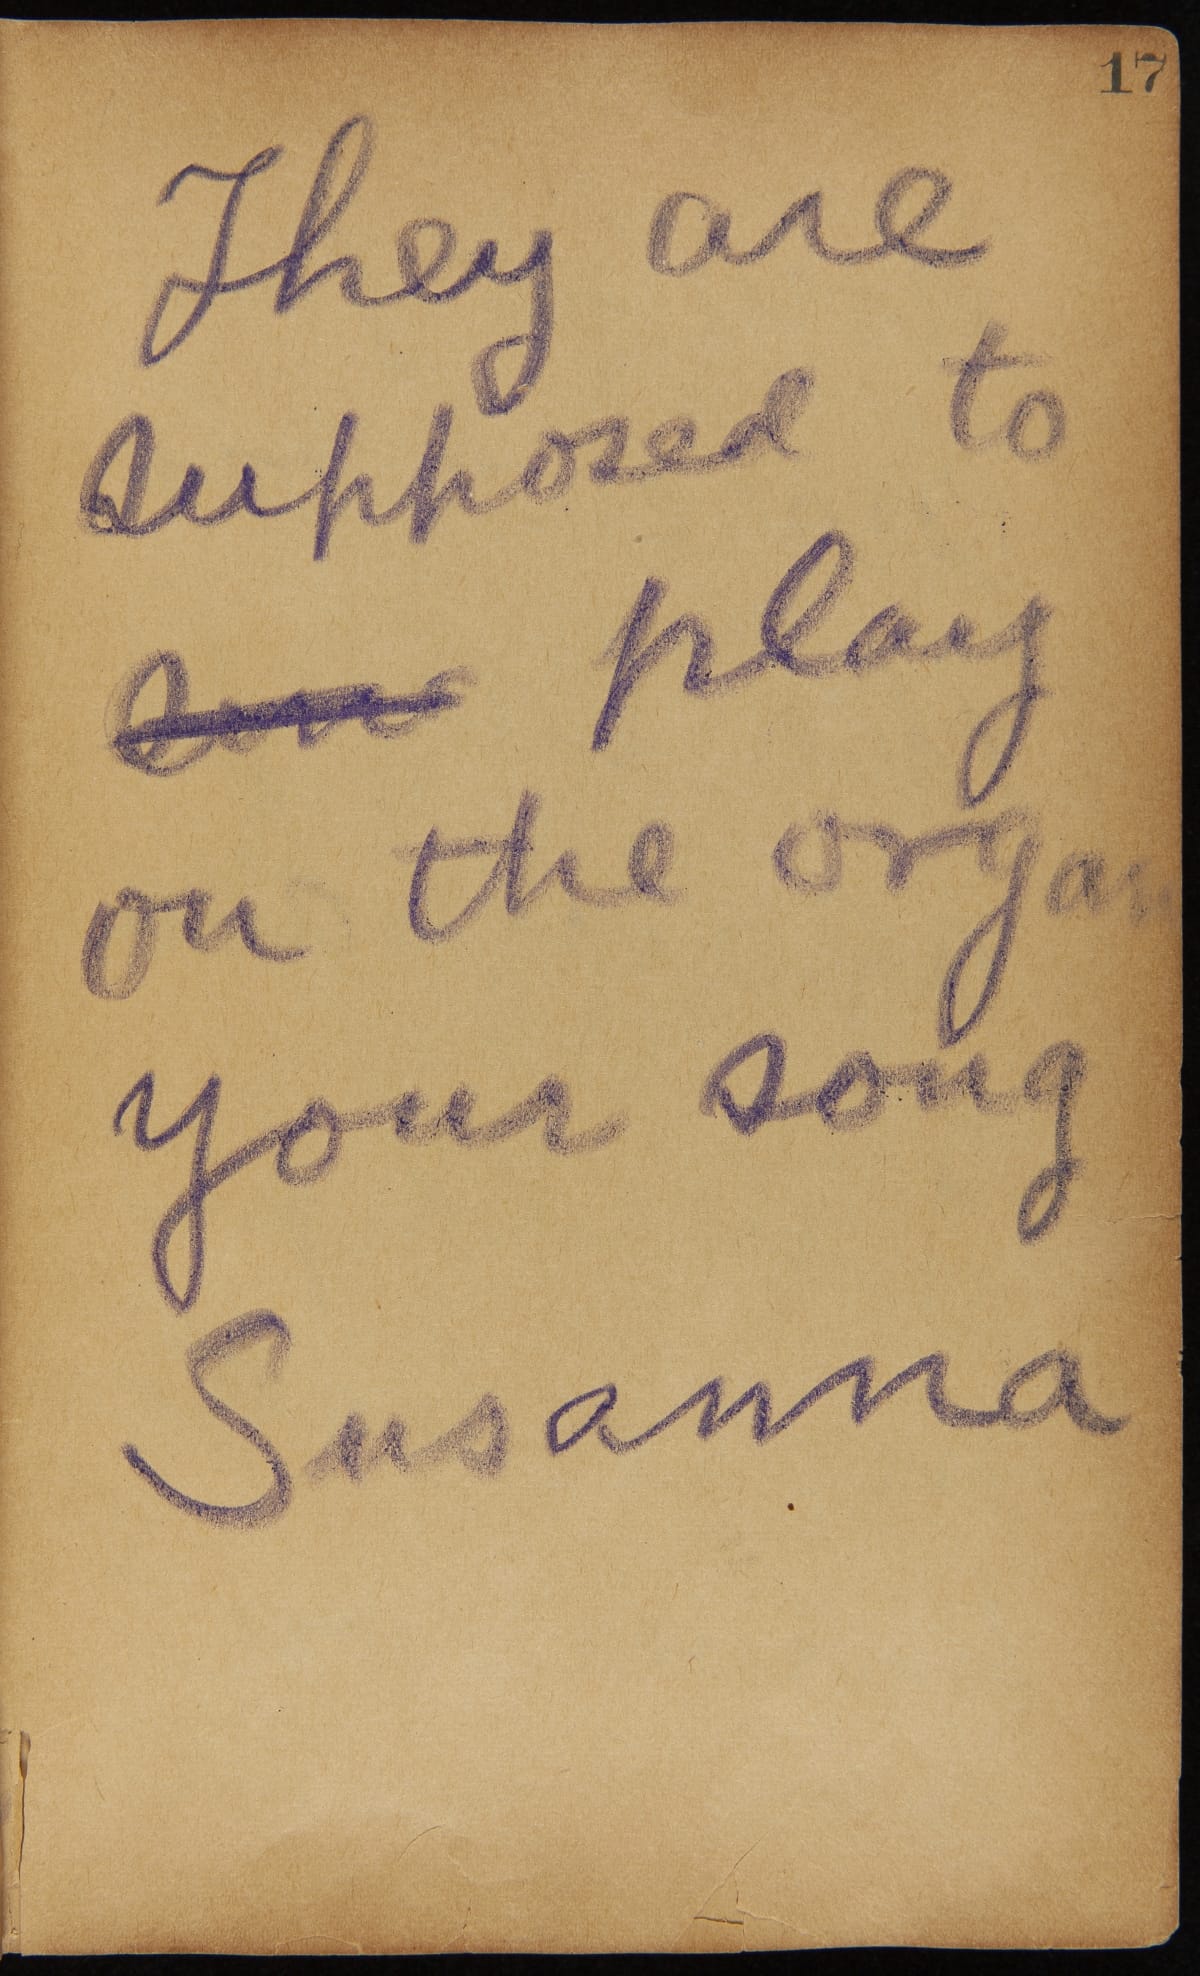 17
They are
supposed to
play
on the organ
your song
Susanna